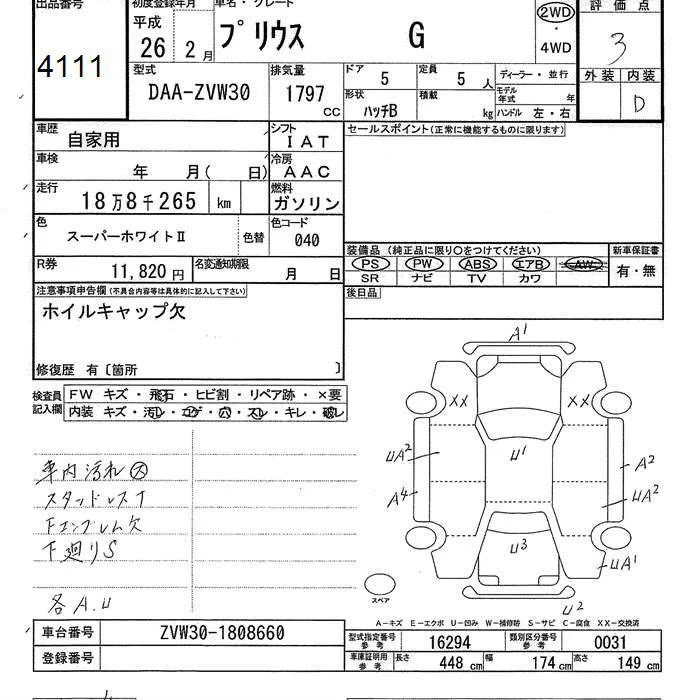 出品番号 初度登録年月 車名・グレード 評価点
平成 26 2月 プリウス G 2WD ・ 4WD 3
4111
型式 DAA-ZVW30 排気量 1797 CC
ドア 5 定員 5 人 ディーラー・並行
形状 ハッチB 積載 kg モデル年式 年
ハンドル 左・右
外装 内装 D
車歴 自家用 シフト IAT
セールスポイント(正常に機能するものに限ります)
車検 年 月( 日) 冷房 AAC
走行 18万8千265 km 燃料 ガソリン
色 スーパーホワイトⅡ 色替 色コード 040
装備品(純正品に限り○をつけてください) 新車保証書
R券 11,820円 名変通知期限 月 日
PS PW ABS エアB AW 有・無
SR ナビ TV カワ
注意事項申告欄(不具合内容等は具体的に記入して下さい) 後日品
ホイルキャップ欠
修復歴 有〔箇所 〕
検査員記入欄 FW キズ・飛石・ヒビ割・リペア跡・×要
内装 キズ・汚レ・コゲ・穴・スレ・キレ・破レ
A1
XX XX
UA2 U1 A2
A4 UA2
U3
UA1
U2
車内汚れ大
スタッドレスT
Fエンブレム欠
下廻りS
各A.U
スペア
A-キズ E-エクボ U-凹み W-補修跡 S-サビ C-腐食 XX-交換済
車台番号 ZVW30-1808660
型式指定番号 参考 16294 類別区分番号 参考 0031
登録番号
車庫証明用 参考 長さ 448 cm 幅 174 cm 高さ 149 cm